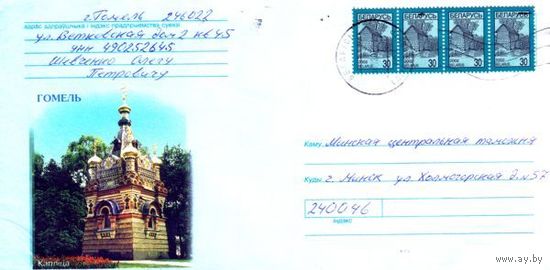 г. Гомель 246022
адрас запраўшчыка і індэкс прадпрыемства сувязі
ул. Ветковская дом 2 кв 45
УНН 490252645
Шевченко Олегу
Петровичу
БЕЛАРУСЬ БЕЛАРУСЬ БЕЛАРУСЬ БЕЛАРУСЬ
30 30 30 30
ГОМЕЛЬ
Каму Минская центральная таможня
Куды г. Минск ул. Холмогорская д. N 57
240046
індэкс
Капліца
www.ay.by